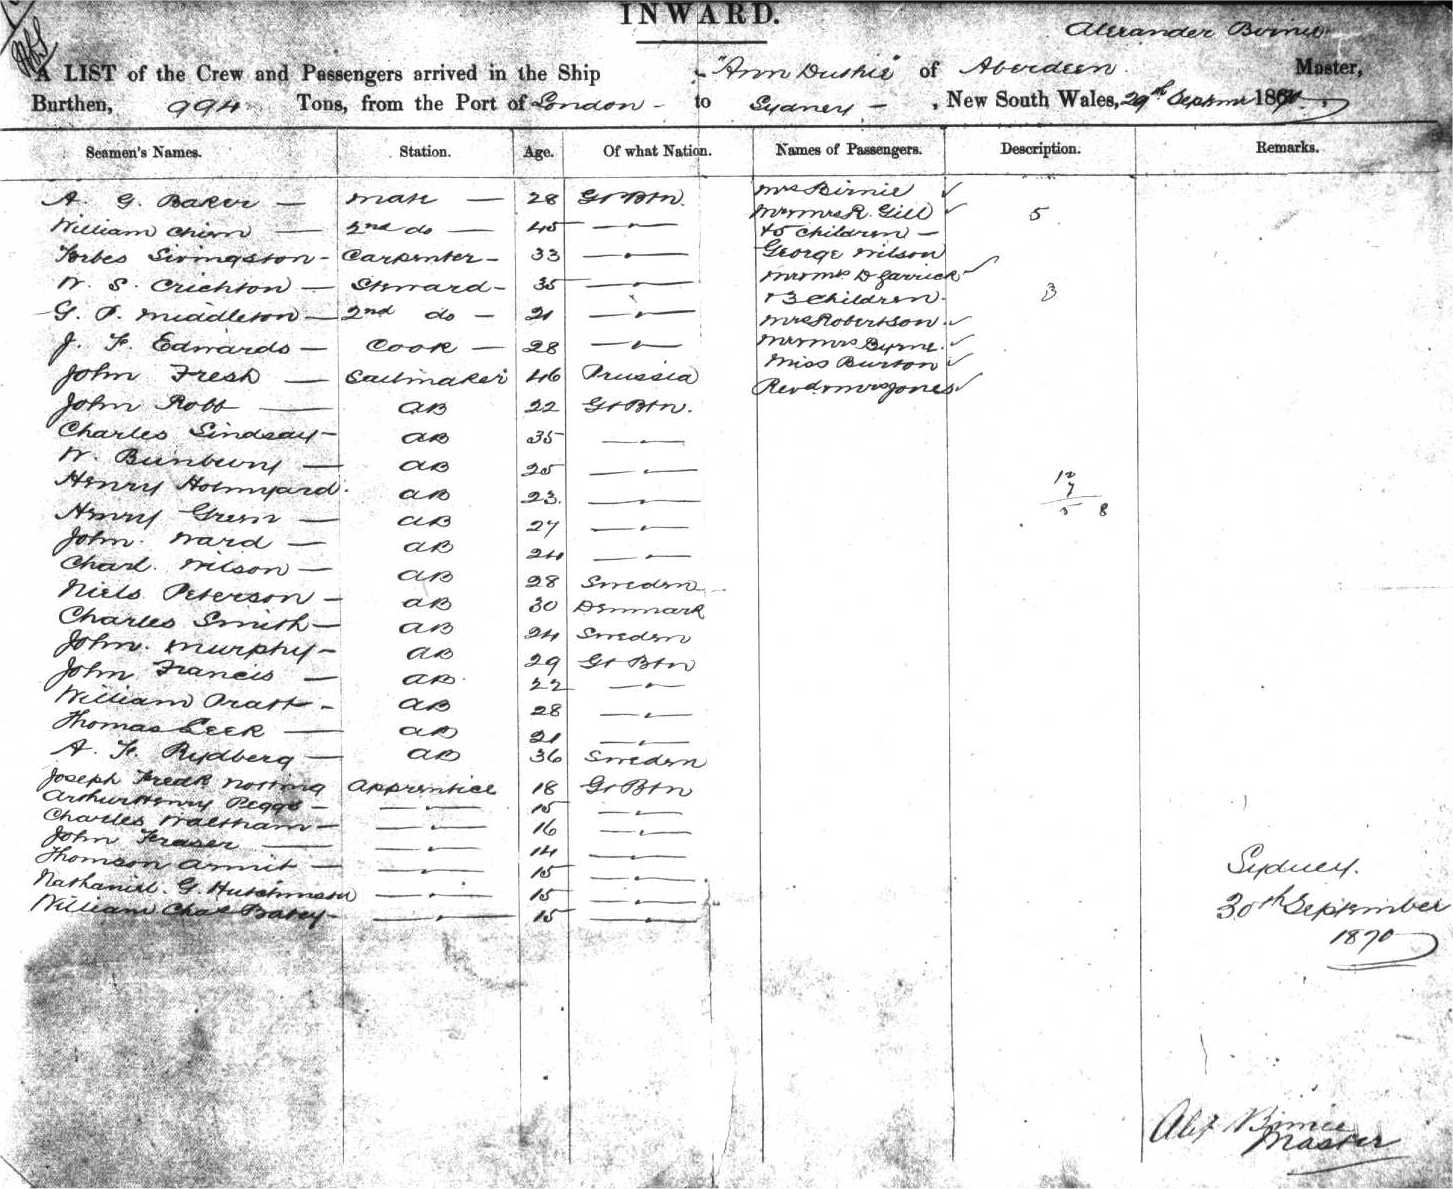 INWARD.
Alexander Birnie
A LIST of the Crew and Passengers arrived in the Ship "Ann Duthie" of Aberdeen Master,
Burthen, 994 Tons, from the Port of London - to Sydney - , New South Wales, 29th Septmr 1870
Seamen's Names. Station. Age. Of what Nation. Names of Passengers. Description. Remarks.
A. G. Baker — Mate — 28 Gt Btn.
William Chim — 2nd do — 45 — " —
Forbes Livingston - Carpenter - 33 — " —
W. S. Crichton — Steward - 35 — " —
G. P. Middleton — 2nd do - 21 — " —
J. F. Edwards — Cook — 28 — " —
John Fresh — Sailmaker 46 Prussia
John Robb — AB 22 Gt Btn.
Charles Lindsay - AB 35 — " —
W. Bunbury — AB 25 — " —
Henry Holmyard. AB 23. — " —
Henry Green — AB 27 — " —
John Ward — AB 24 — " —
Charl. Wilson — AB 28 Sweden
Niels Peterson - AB 30 Denmark
Charles Smith — AB 24 Sweden
John Murphy - AB 29 Gt Btn
John Francis — AB 22 — " —
William Pratt - AB 28 — " —
Thomas Leek — AB 21 — " —
A. F. Rydberg — AB 36 Sweden
Joseph Fredk Notting Apprentice 18 Gt Btn
Arthur Henry Peggs - — " — 15 — " —
Charles Waltham - — " — 16 — " —
John Fraser — — " — 14 — " —
Thomson Armit — — " — 15 — " —
Nathaniel. G. Hutchinson — " — 15 — " —
William Chas Batey - — " — 15 — " —
Mrs Birnie ✓
Mr & Mrs R. Gill ✓ 5
& 5 Children —
George Wilson
Mr & Mrs D Garrick ✓
& 3 Children. 3
Mrs Robertson. ✓
Mr & Mrs Byrne. ✓
Miss Burton ✓
Revd & Mrs Jones ✓
12
7
5 8
Sydney.
30th September
1870
Alex Birnie
Master